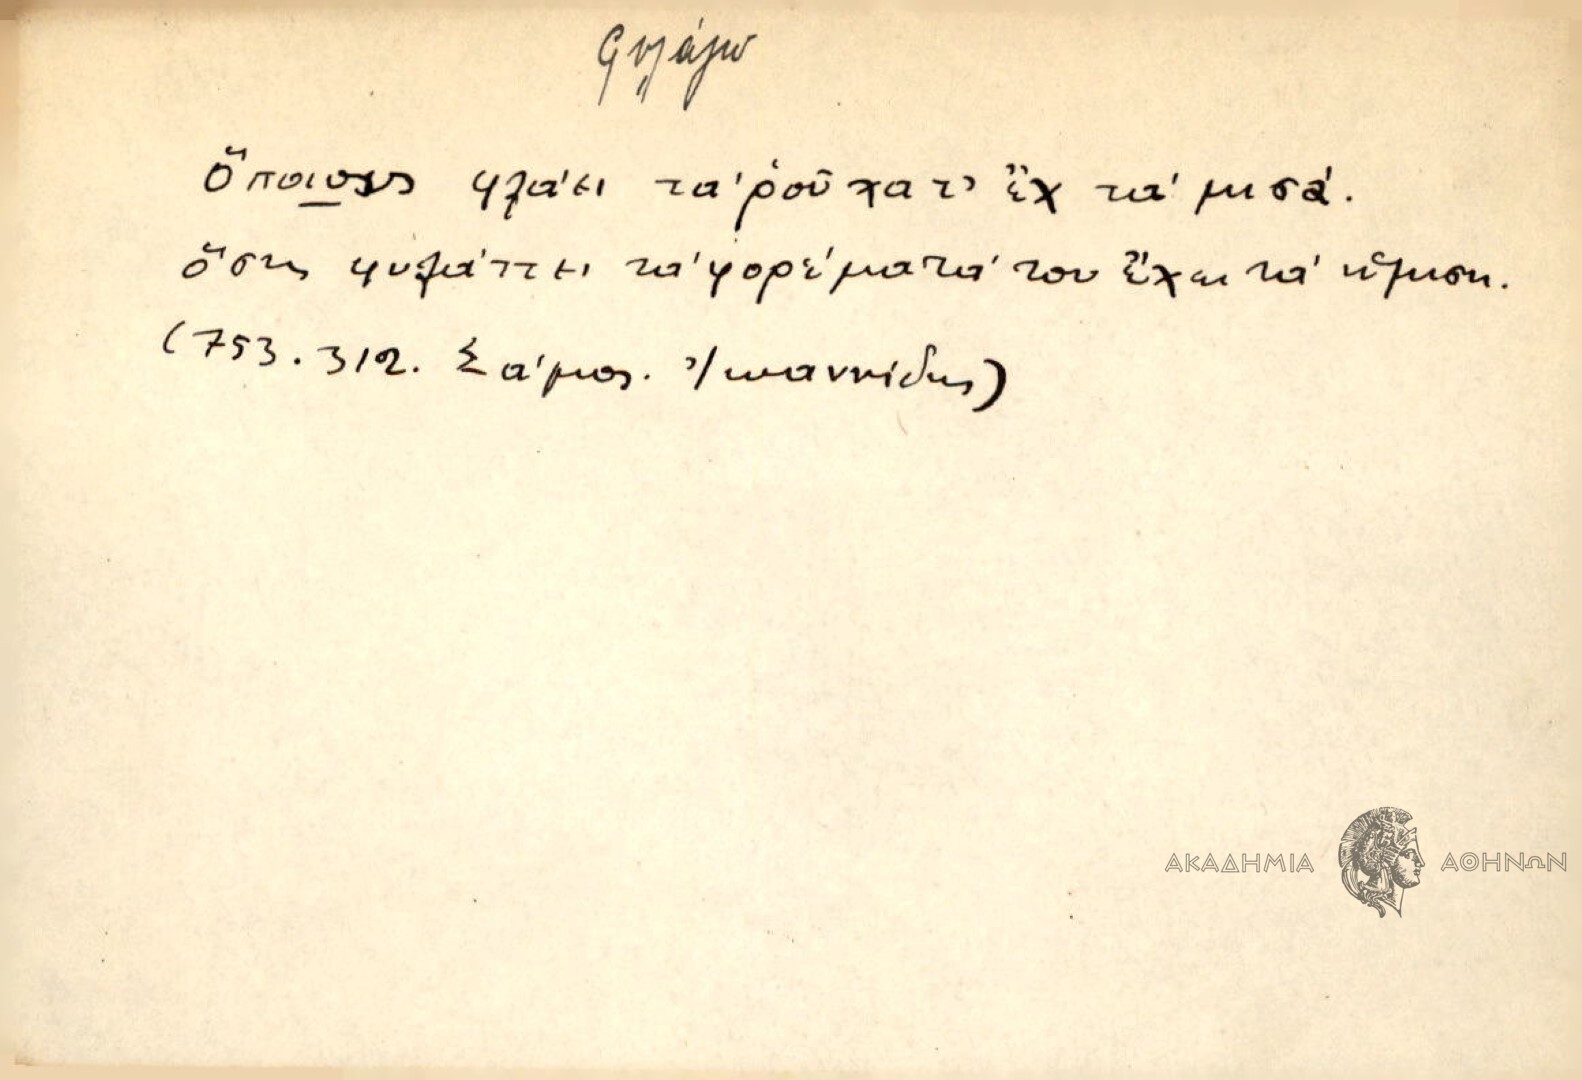 φυλάγω
ὅποιους φλάει τὰ ῥοῦχα τ᾽ ἔχ τὰ μισά.
ὅστις φυλάττει τὰ φορέματά του ἔχει τὰ ἥμιση.
(753.312. Σάμος. Ἰωαννίδης)
ΑΚΑΔΗΜΙΑ ΑΘΗΝΩΝ